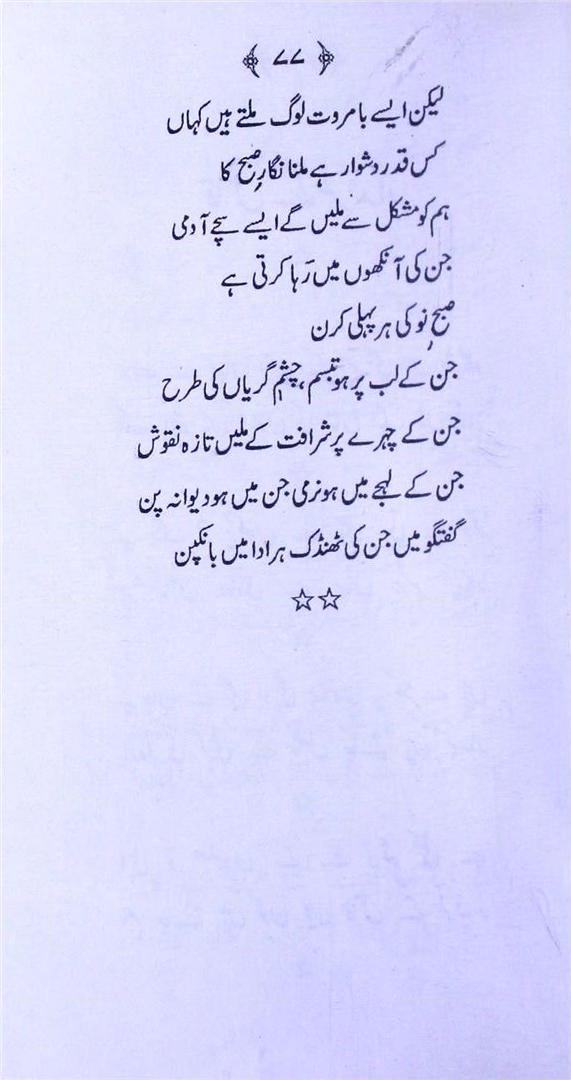 ﴿ ۷۷ ﴾
لیکن ایسے بامروت لوگ ملتے ہیں کہاں
کس قدر دشوار ہے ملنا نگارِ صبح کا
ہم کو مشکل سے ملیں گے ایسے سچے آدمی
جن کی آنکھوں میں رَہا کرتی ہے
صبحِ نو کی ہر پہلی کرن
جن کے لب پر ہو تبسم، چشمِ گریاں کی طرح
جن کے چہرے پر شرافت کے ملیں تازہ نقوش
جن کے لہجے میں ہو نرمی جن میں ہو دیوانہ پن
گفتگو میں جن کی ٹھنڈک ہر ادا میں بانکپن
☆☆